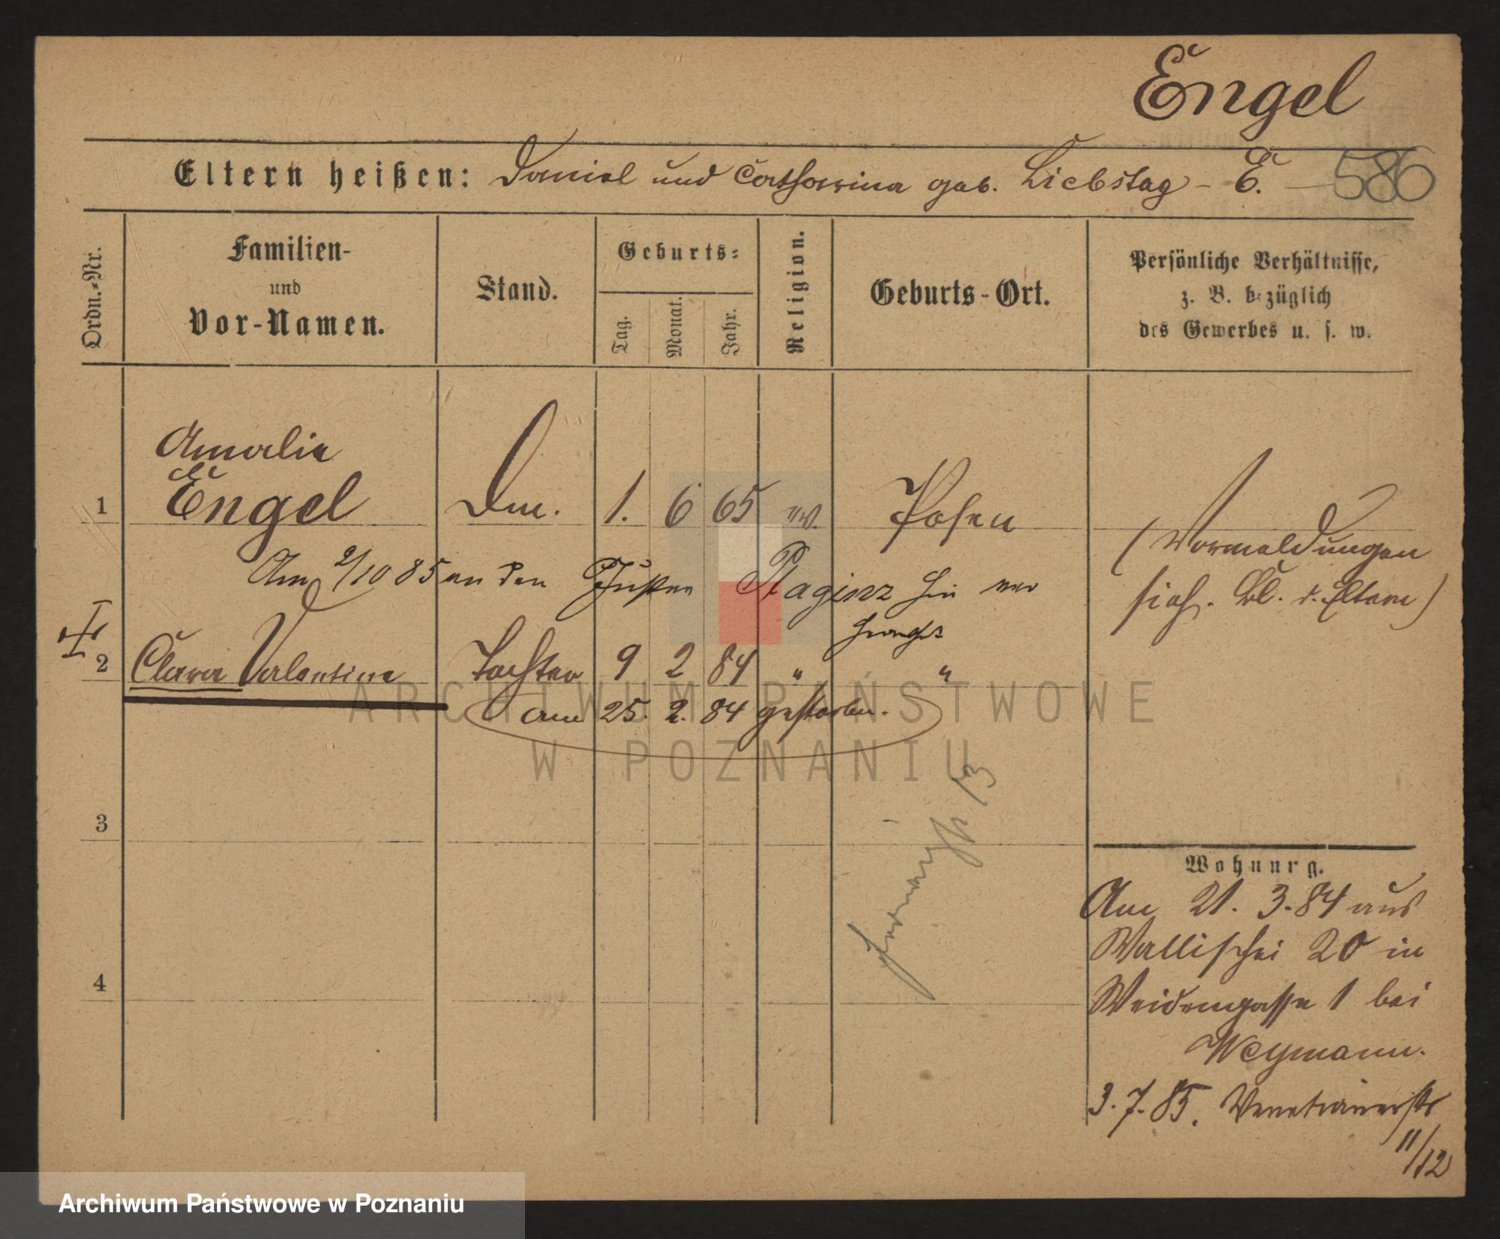 Engel
Eltern heißen: Daniel und Catharina geb. Liebstag - E. - 586
Ordn.-Nr.
Familien-
und
Vor-Namen.
Stand.
Geburts-
Tag.
Monat.
Jahr.
Religion.
Geburts-Ort.
Persönliche Verhältnisse,
z. B. bezüglich
des Gewerbes u. s. w.
Amalie
1 Engel Dm. 1. 6 65 ev. Posen
(Vormeldungen
sieh. Bl. d. Eltern)
Am 2/10 85 an den
2 Clara Valentine Tochter 9 2 84 " "
am 25. 2. 84 gestorben.
3
4
13
Wohnung.
Am 21. 3. 84 aus
Wallischei 20 in
Weidengasse 1 bei
Weymann.
3. 7. 85. Venetianerstr
11/12
ARCHIWUM PAŃSTWOWE
W POZNANIU
Archiwum Państwowe w Poznaniu